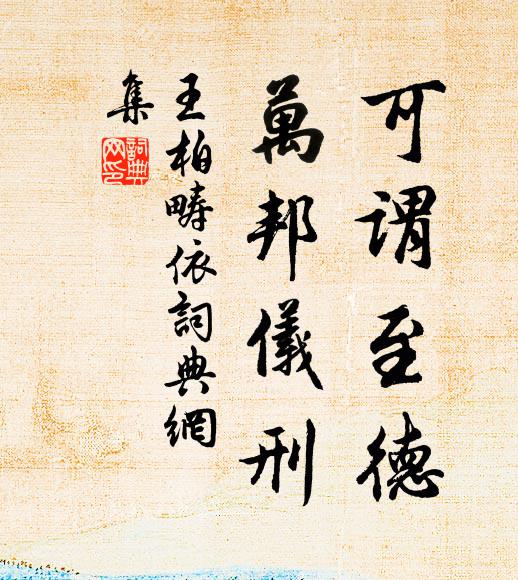 可謂至德
萬邦儀刑
王柏疇依詞典網
集
詞典网印